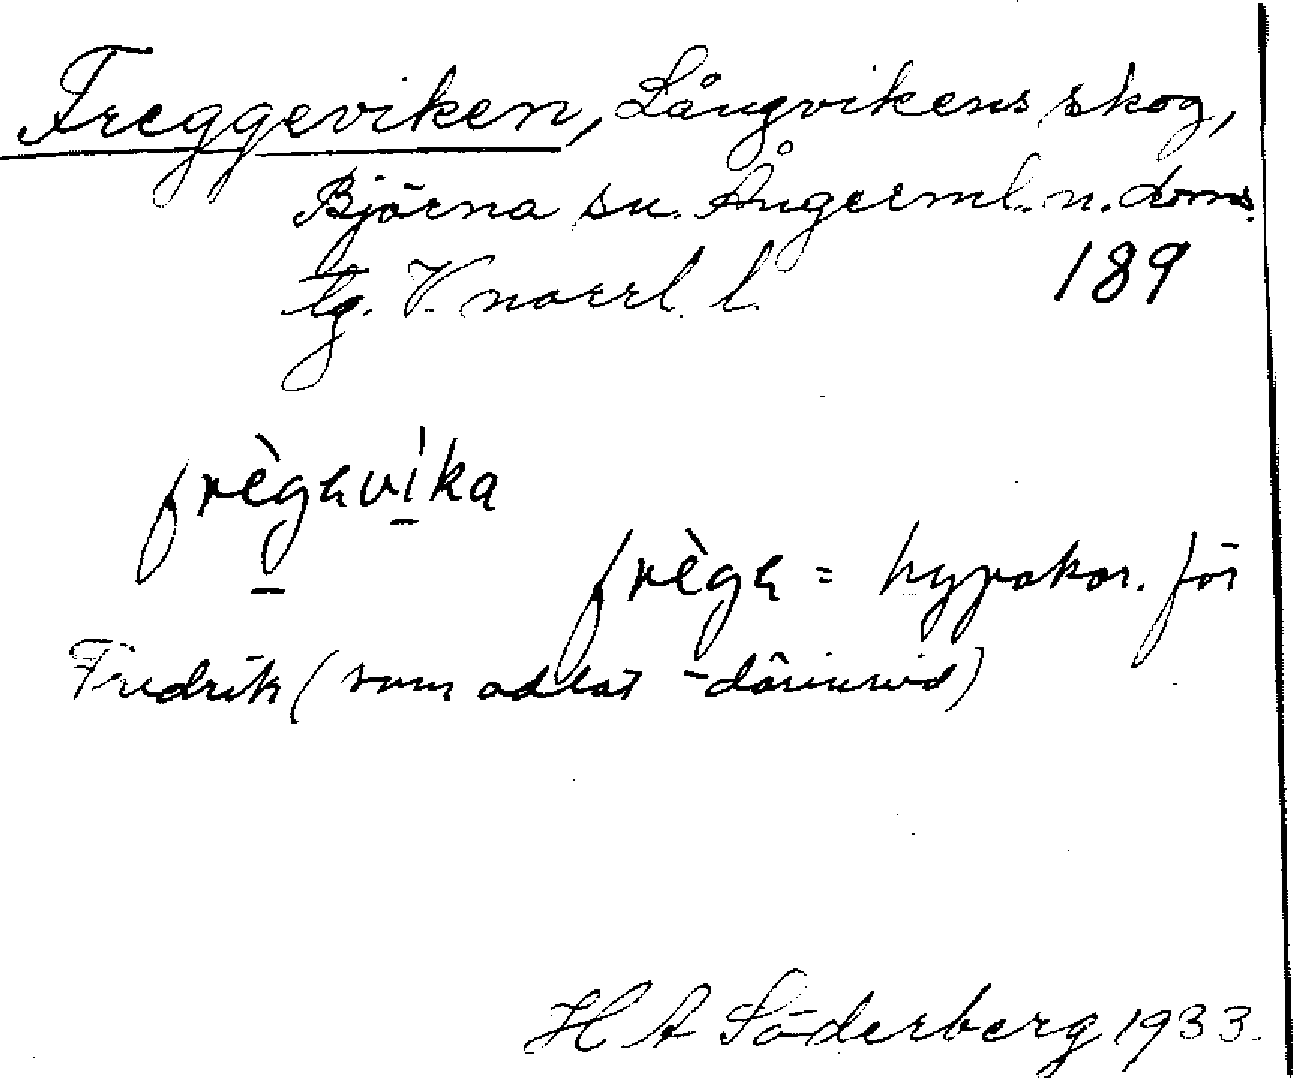 Freggeviken, Långvikens skog,
Björna sn. Ångerml. n. doms.
tg. V. norrl. l. 189
frègavíka
frèga = hypokor. för
Fredrik (som odlat -därinvid)
H A Söderberg 1933.